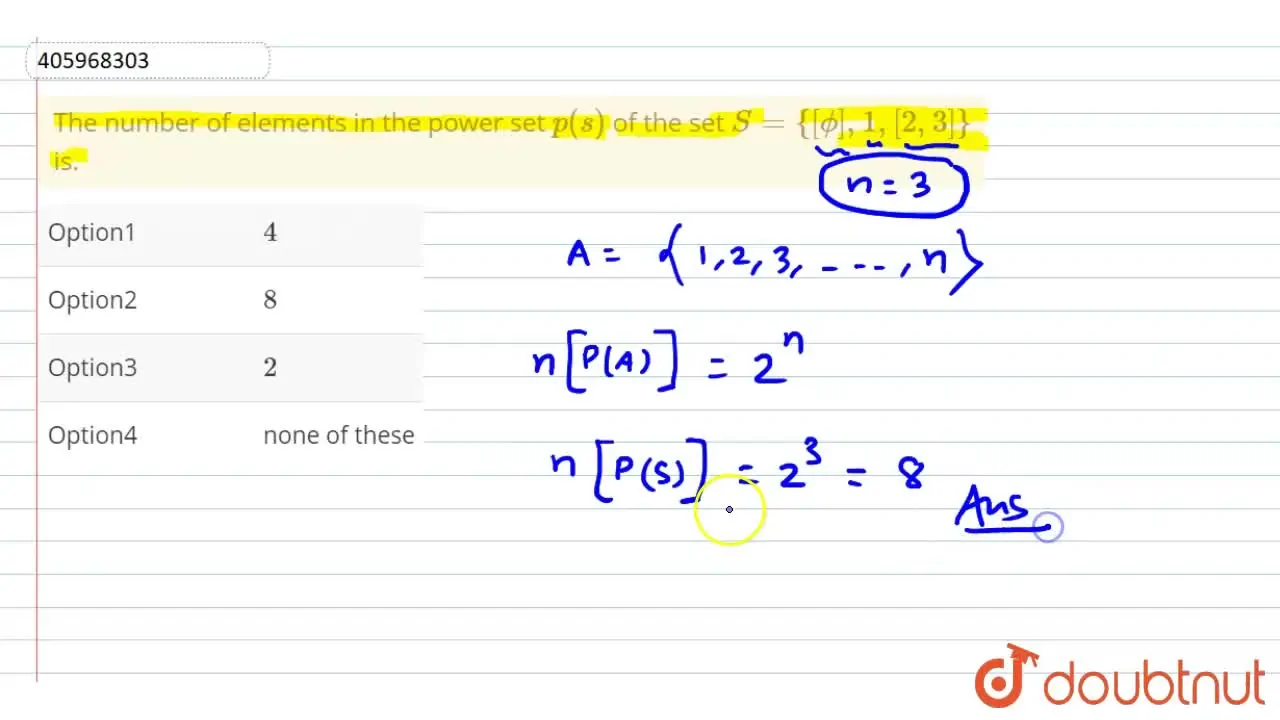 405968303
The number of elements in the power set p(s) of the set S = {[ϕ], 1, [2, 3]}
is.
n = 3
Option1 4
A = {1, 2, 3, - - - -, n}
Option2 8
n[P(A)] = 2^n
Option3 2
Option4 none of these
n[P(S)] = 2^3 = 8
Ans
doubtnut